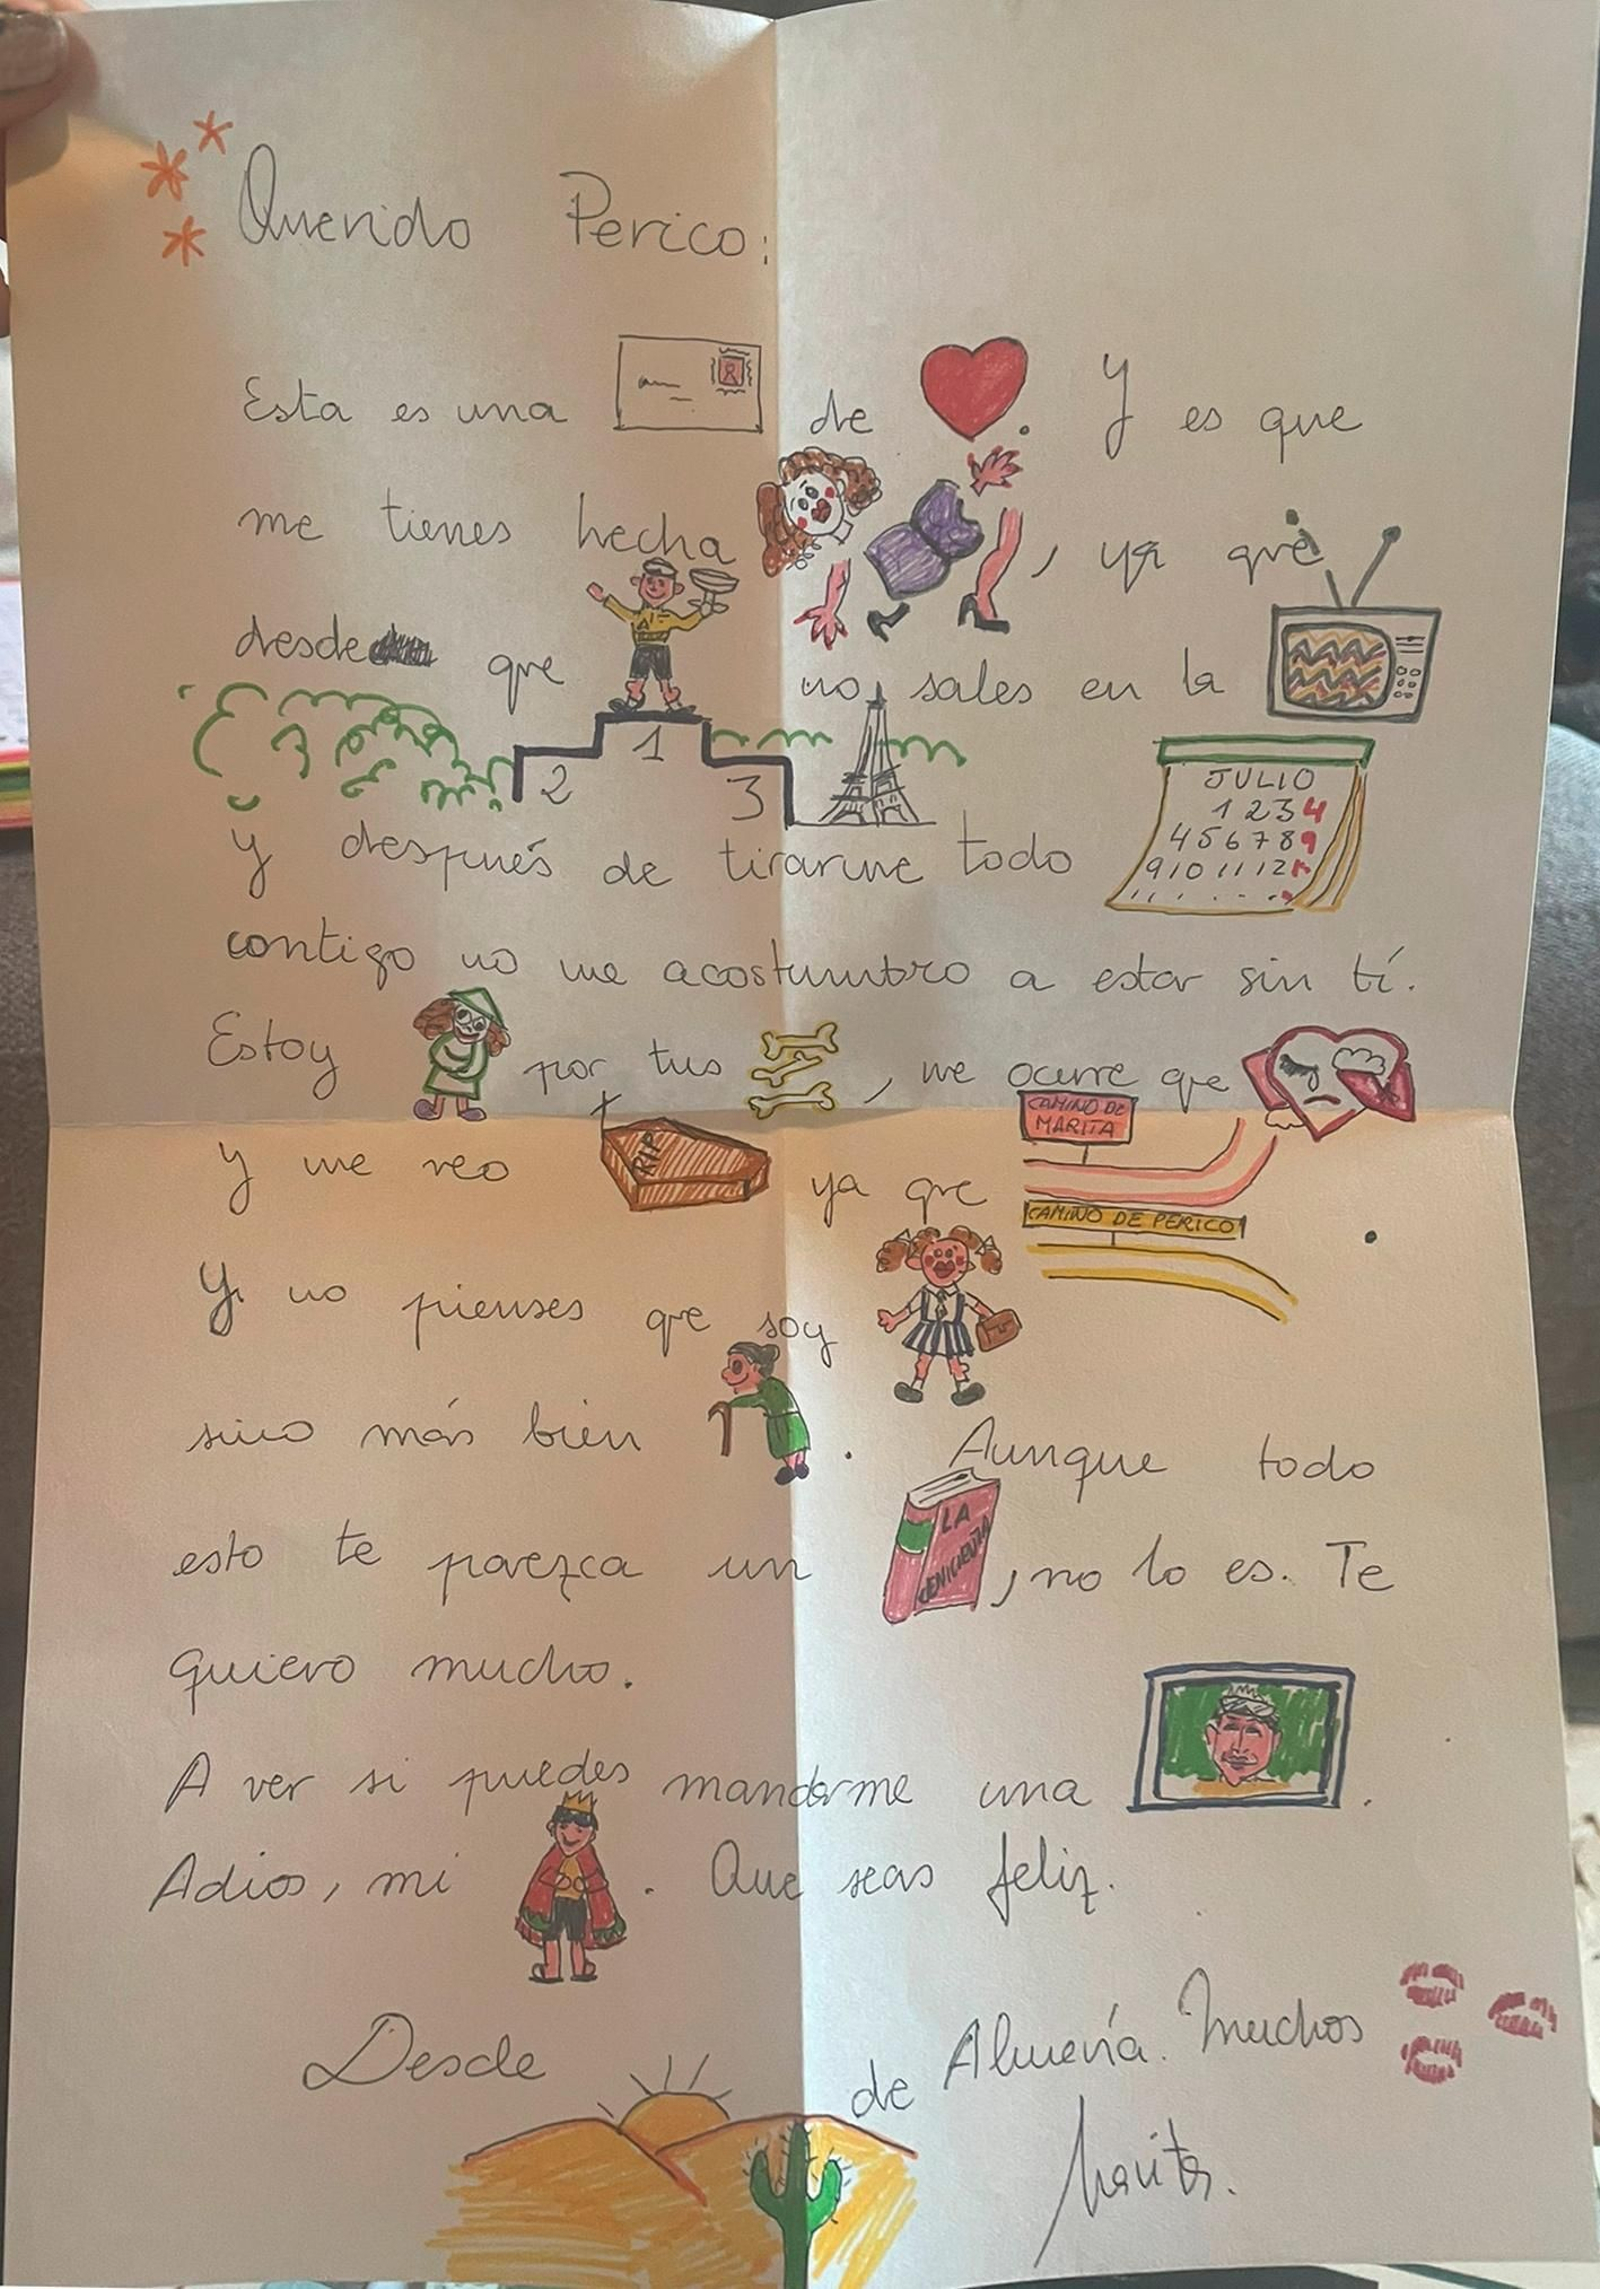 Querido Perico:
Esta es una R de . Y es que
me tienes hecha , ya que
desde que no sales en la
1
2
3
JULIO
1 2 3 4
4 5 6 7 8 9
9 10 11 12
y después de tirarme todo
contigo no me acostumbro a estar sin tí.
Estoy por tus , me ocurre que
y me veo RIP ya que
CAMINO DE
MARITA
CAMINO DE PERICO
.
Y no pienses que soy
sino más bien . Aunque todo
esto te parezca un LA CENICIENTA , no lo es. Te
quiero mucho.
A ver si puedes mandarme una .
Adios, mi . Que seas feliz.
Desde de Almería. Muchos
Marita.